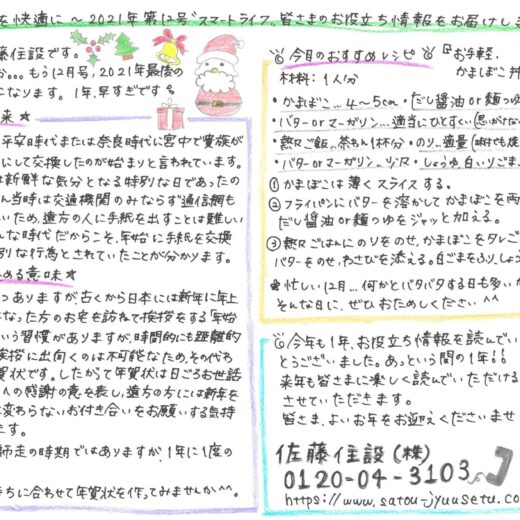 を快適に～2021年第12号"スマートライフ、皆さまのお役立ち情報をお届けしま
藤住設です。
か...もう12月号、2021年最後の
になります。1年、早すぎです
来☆
平安時代または奈良時代に宮中で貴族が
にして交換したのが始まりと言われています。
は新鮮な気分となる特別な日であったの
ん当時は交通機関のみならず通信網も
いため、遠方の人に手紙を出すことは難しい
んな時代だからこそ、年始に手紙を交換
別な行為とされていたことが分かります。
める意味☆
つありますが古くから日本には新年に年上
なった方のお宅を訪ねて挨拶をする「年始
いう習慣がありますが、時間的にも距離的
挨拶に出向くのは不可能なため、その代わ
賀状です。したがって年賀状は日ごろお世話
への感謝の意を表し、遠方の方には新年を
変わらないお付き合いをお願いする気持
ます。
師走の時期ではありますが、1年に1度の
持ちに合わせて年賀状を作ってみませんか^^。
今月のおすすめレシピ
『お手軽、
かまぼこ丼
材料:1人分
・かまぼこ…4～5cm・だし醤油or麺つゆ
・バターorマーガリン…適当にひとすくい
・熱々ご飯…茶わん1杯分・のり…適量
・バターorマーガリン…少々・しょうゆ、白いりごま…
①かまぼこは薄くスライスする。
②フライパンにバターを溶かしてかまぼこを両
だし醤油or麺つゆをジャッと加える。
③熱々ごはんにのりをのせ、かまぼこをタレご
バターをのせ、わさびを添える。白ごまをふり、しょう
忙しい12月…何かとバタバタする日も多いか
そんな日に、ぜひおためしください^^
今年も1年、お役立ち情報を読んでい
とうございました。あっという間の1年!!
来年も皆さまに楽しく読んでいただける
させていただきます。
皆さま、よいお年をお迎えくださいませ
佐藤住設(株)
0120-04-3103
https://www.satou-jyuusetu.co